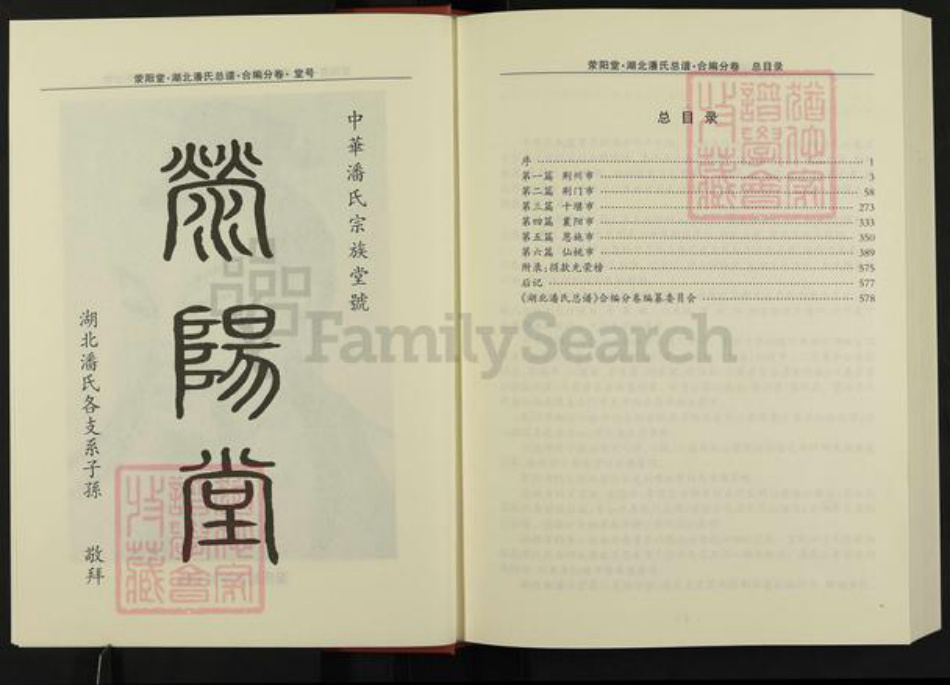 荥阳堂·湖北潘氏总谱·合编分卷·堂号
中華潘氏宗族堂號
滎陽堂
湖北潘氏各支系子孫 敬拜
荥阳堂·湖北潘氏总谱·合编分卷 总目录
总目录
序 1
第一篇 荆州市 3
第二篇 荆门市 58
第三篇 十堰市 273
第四篇 襄阳市 333
第五篇 恩施市 350
第六篇 仙桃市 389
附录:捐款光荣榜 575
后记 577
《湖北潘氏总谱》合编分卷编纂委员会 578
FamilySearch